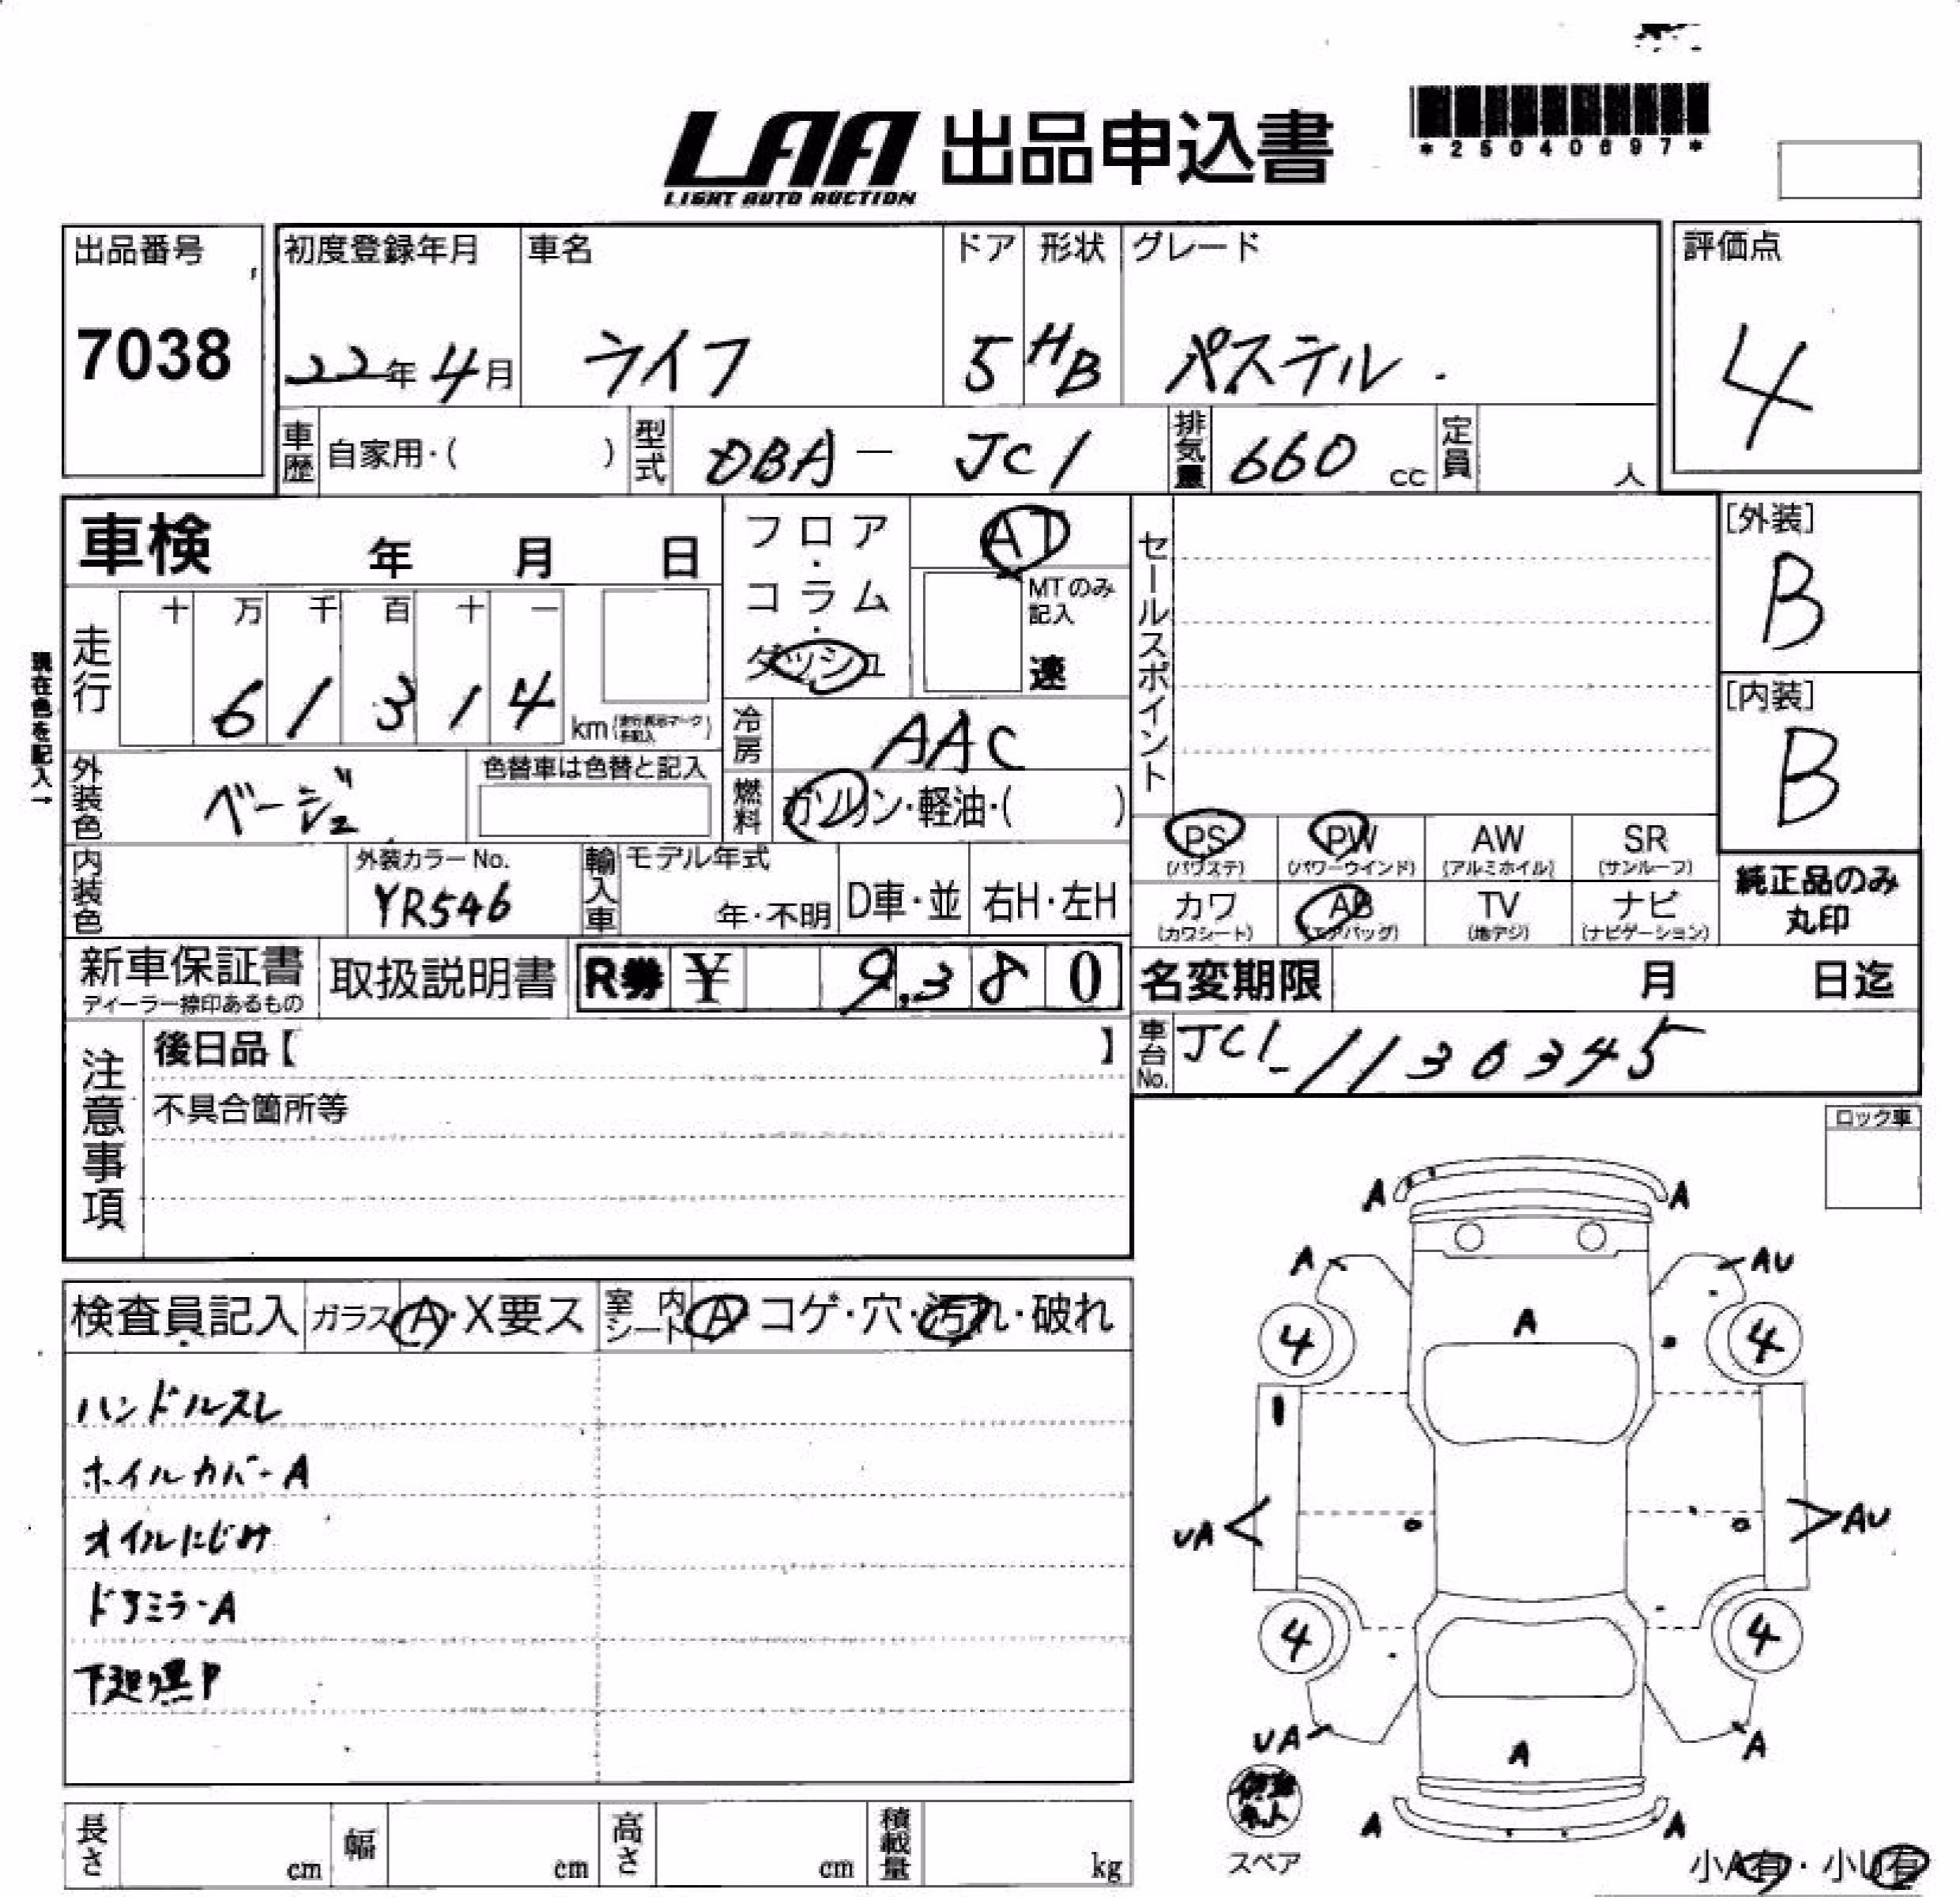 LAA 出品申込書
LIGHT AUTO AUCTION
*25040697*
出品番号
7038
初度登録年月
22年4月
車名
ライフ
ドア
5
形状
HB
グレード
パステル
評価点
4
車歴
自家用・( )
型式
DBA－JC1
排気量
660 cc
定員
人
車検 年 月 日
走行
十 万 千 百 十 一
6 1 3 1 4
km
現在色を記入→
フロア・コラム・ダッシュ
AT
MTのみ記入
速
冷房
AAC
燃料
ガソリン・軽油・( )
セールスポイント
[外装]
B
[内装]
B
外装色
ベージュ
色替車は色替と記入
内装色
外装カラーNo.
YR546
輸入車
モデル年式
年・不明
D車・並
右H・左H
PS
(パワステ)
PW
(パワーウインド)
AW
(アルミホイル)
SR
(サンルーフ)
カワ
(カワシート)
AB
(エアバッグ)
TV
(地デジ)
ナビ
(ナビゲーション)
純正品のみ
丸印
新車保証書
ディーラー捺印あるもの
取扱説明書
R券 ¥ 9,380
名変期限 月 日迄
車台No.
JC1-1130345
注意事項
後日品【 】
不具合箇所等
ロック車
検査員記入
ガラス
A・X要ス
室内シート
A・コゲ・穴・汚れ・破れ
ハンドルスレ
ホイルカバーA
オイルにじみ
ドアミラーA
下廻黒P
A A
A AU
A
4 4
UA AU
4 4
UA A
A
A A
スペア
小A有・小U有
長さ cm
幅 cm
高さ cm
積載量 kg